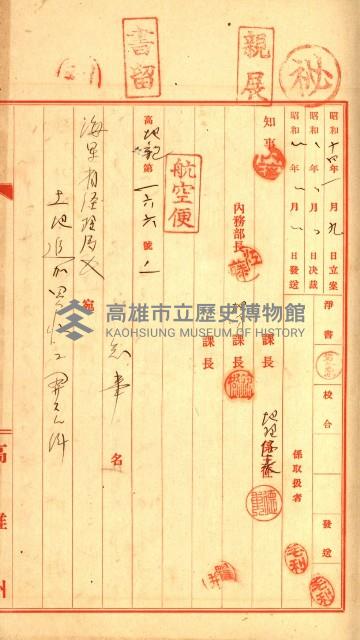 秘
親展
書留
昭和十四年 月九日立案
昭和 年 月 日決裁
昭和 年 月 日發送
淨書
校合
發送
係取扱者
毛利
毛利
知事
內務部長
課長
課長
課長
地理係長
航空便
高地記第一六六號ノ一
知事名
海軍省經理局長宛
土地追加買收ニ關スル件
高雄州
高雄市立歷史博物館
KAOHSIUNG MUSEUM OF HISTORY